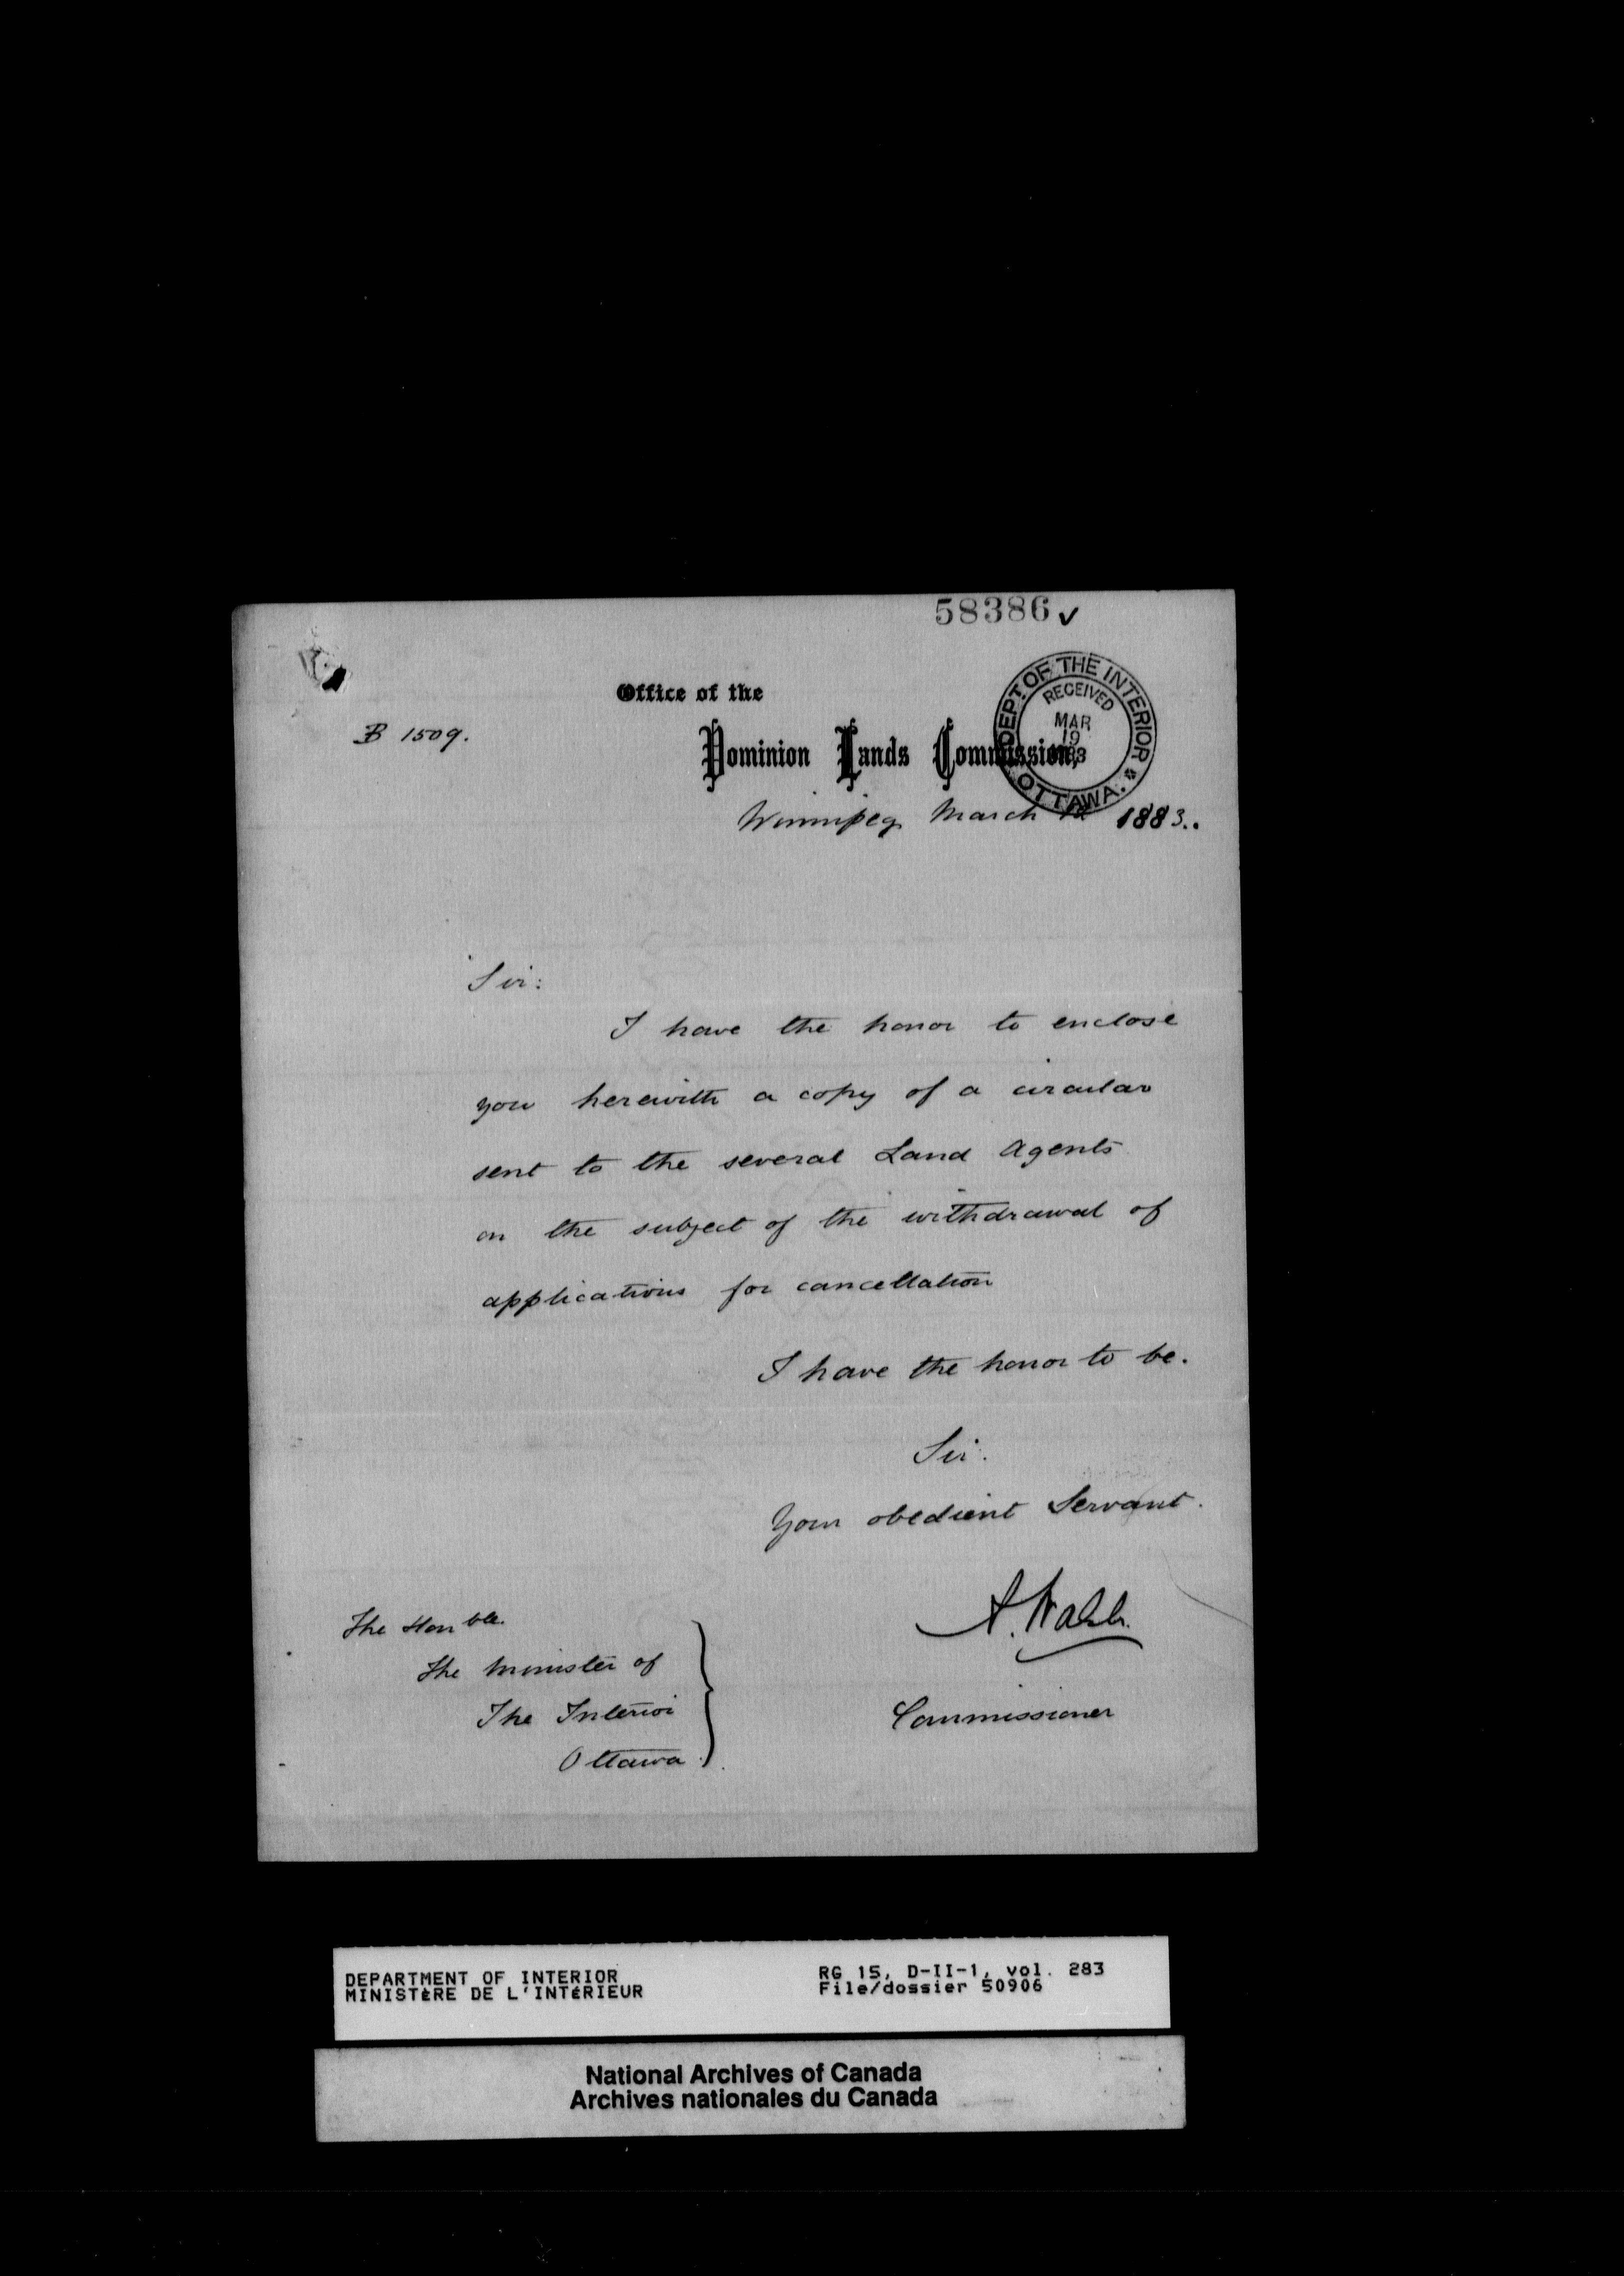 58386 ✓
Office of the
B 1509.
Dominion Lands Commission,
DEPT. OF THE INTERIOR
RECEIVED
MAR
19
OTTAWA.
Winnipeg March 1883.
Sir:
I have the honor to enclose
you herewith a copy of a circular
sent to the several Land Agents
on the subject of the withdrawal of
applications for cancellation
I have the honor to be.
Sir.
Your obedient Servant.
A. Walsh.
Commissioner
The Honble.
The Minister of
The Interior
Ottawa.
DEPARTMENT OF INTERIOR
MINISTÈRE DE L'INTÉRIEUR
RG 15, D-II-1, vol. 283
File/dossier 50906
National Archives of Canada
Archives nationales du Canada